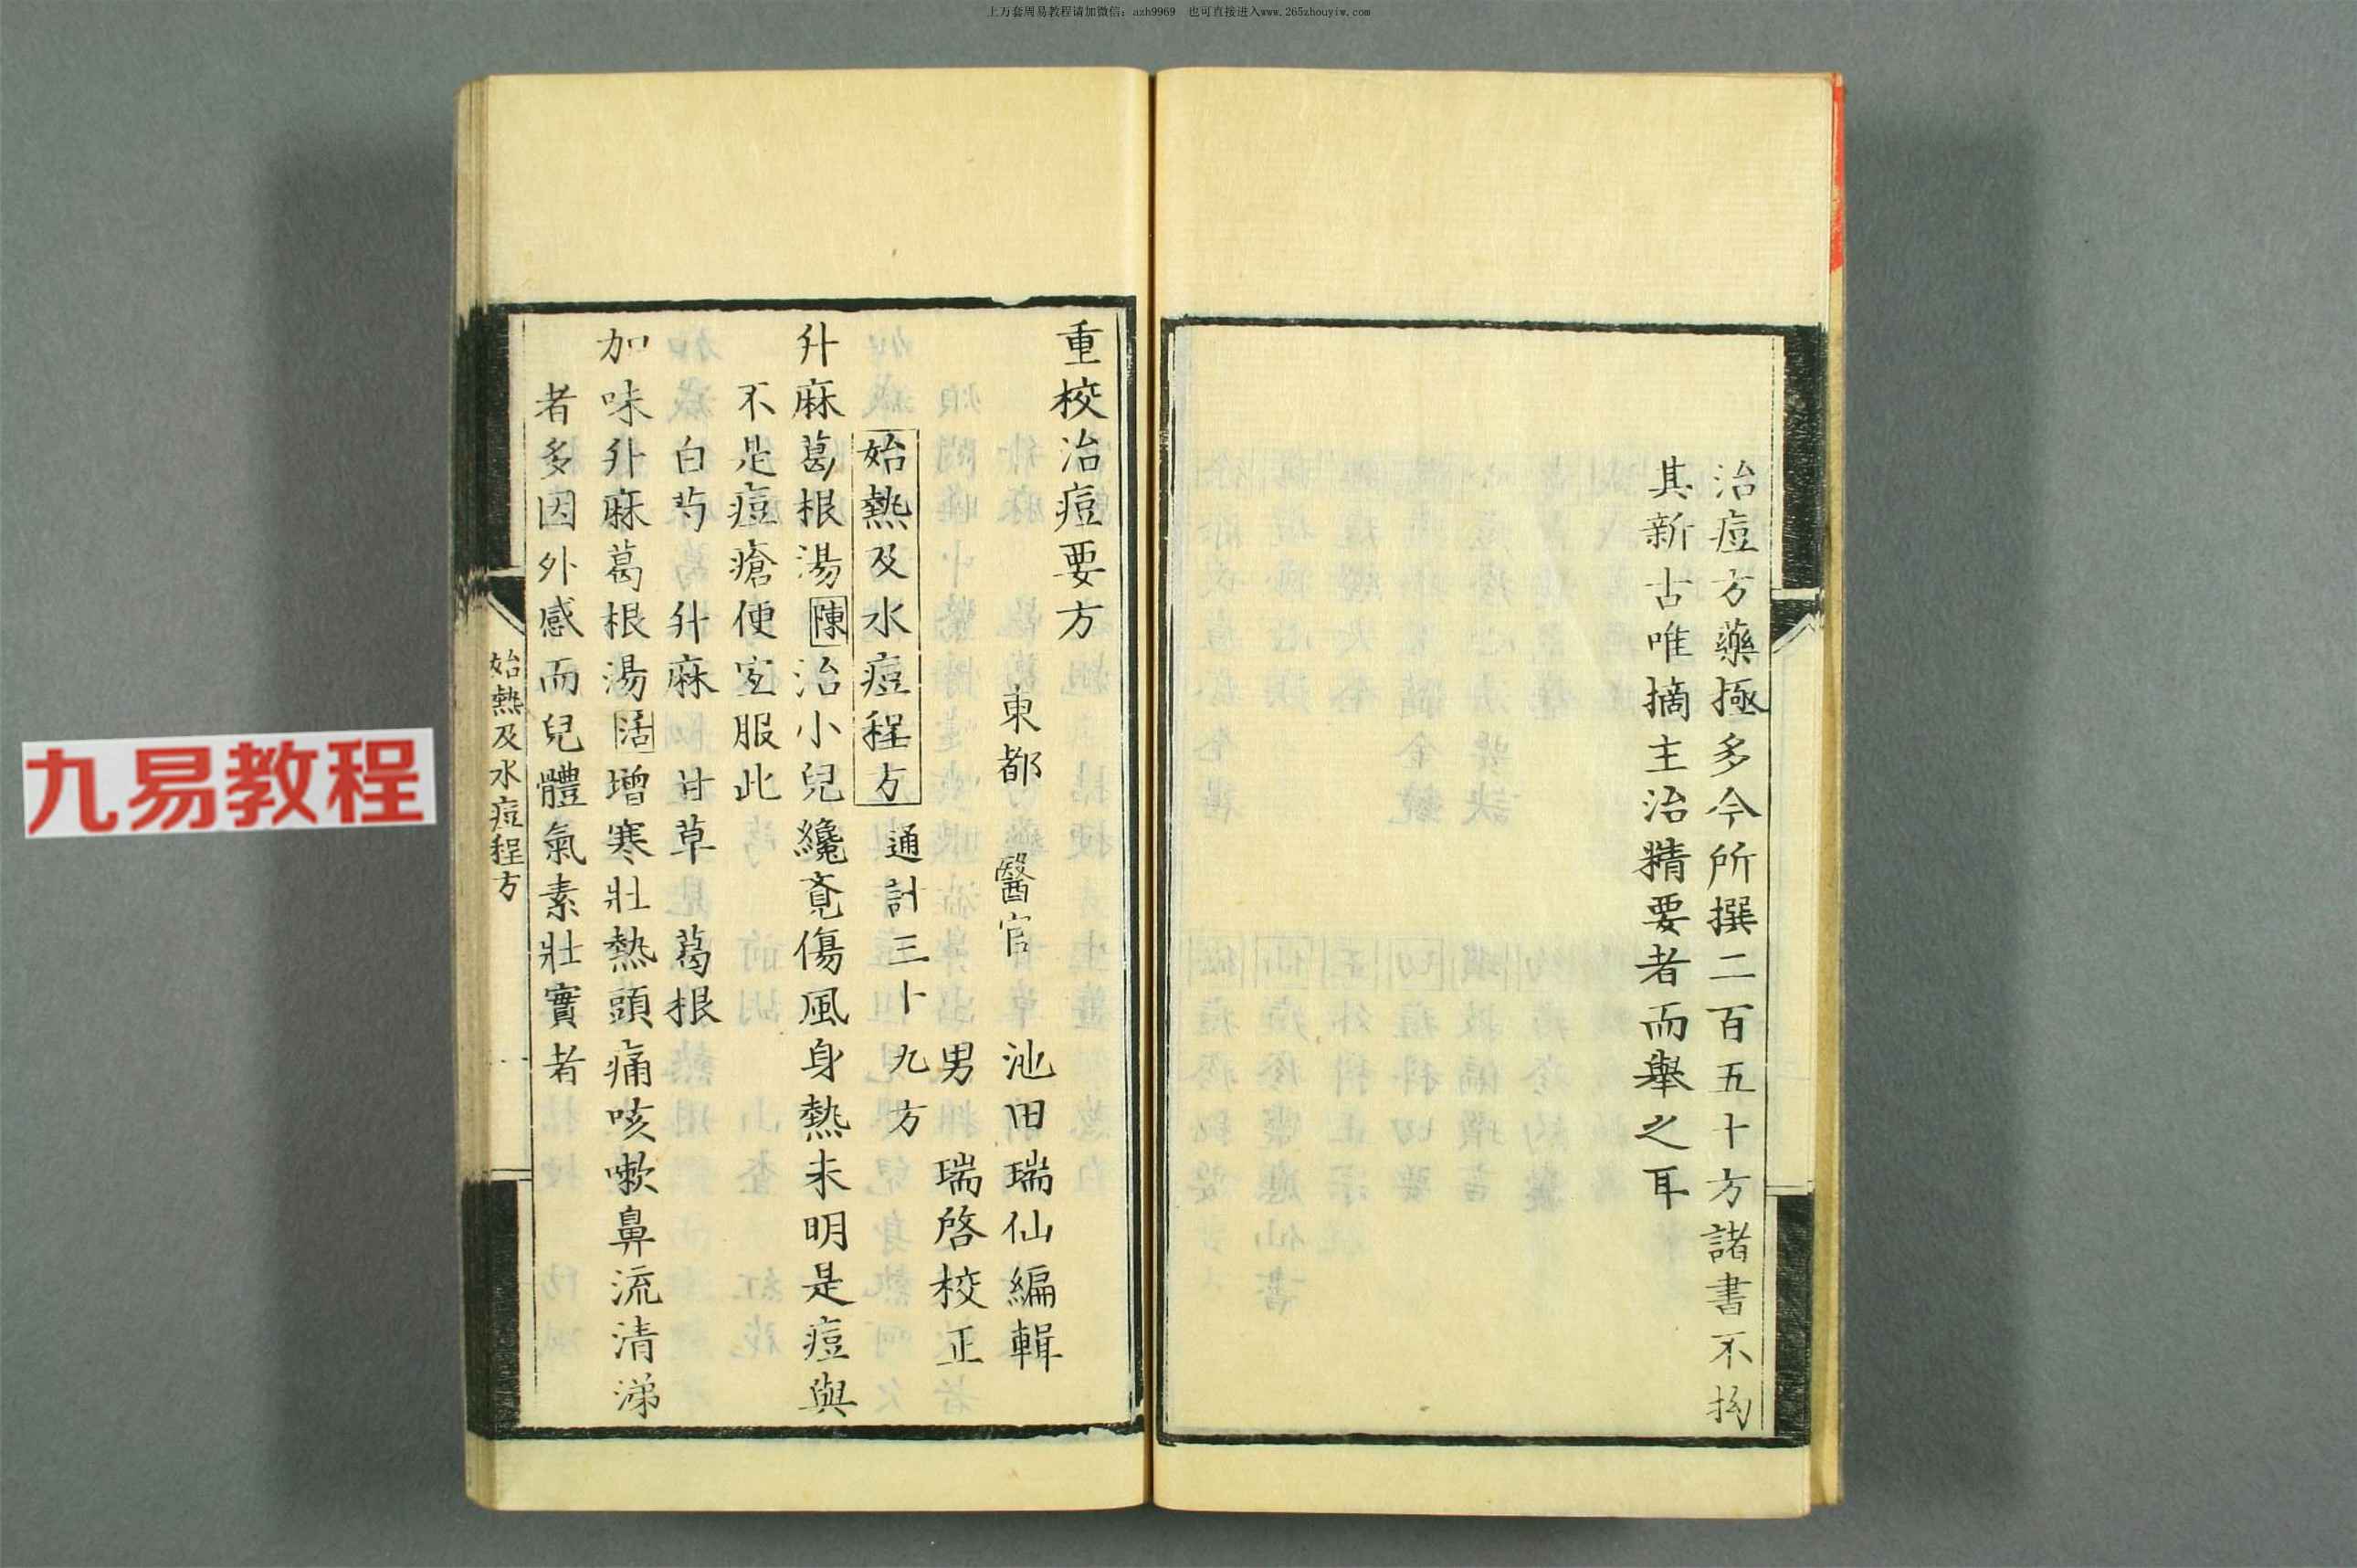 上万套周易教程请加微信：azh9969　也可直接进入www.265zhouyiw.com
治痘方藥極多今所撰二百五十方諸書不拘
其新古唯摘主治精要者而舉之耳
重校治痘要方
東都　醫官　池田瑞仙編輯
男　瑞啓校正
始熱及水痘程方　通計三十九方
升麻葛根湯陳治小兒纔覔傷風身熱未明是痘與
不是痘瘡便宐服此
白芍　升麻　甘草　葛根
加味升麻葛根湯活增寒壯熱頭痛咳嗽鼻流清涕
者多因外感而兒體氣素壯實者
始熱及水痘程方
九易教程